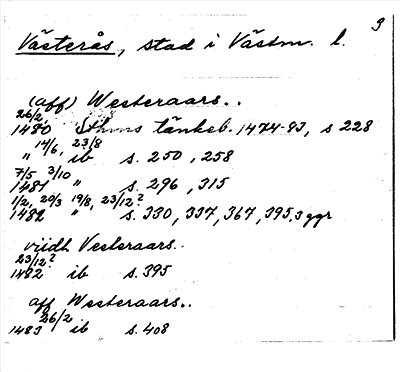 3
Västerås, stad i Västm. l.
(aff) Westeraars..
26/2
1480 Sthms tänkeb. 1474-83, s 228
14/6, 23/8
" ib s. 250, 258
7/5 3/10
1481 " s. 296, 315
1/2, 20/3 19/8, 23/12?
1482 " s. 330, 337, 367, 395, 3 ggr
viidh Vesteraars..
23/12?
1482 ib s. 395
aff Westeraars..
26/2
1483 ib s. 408